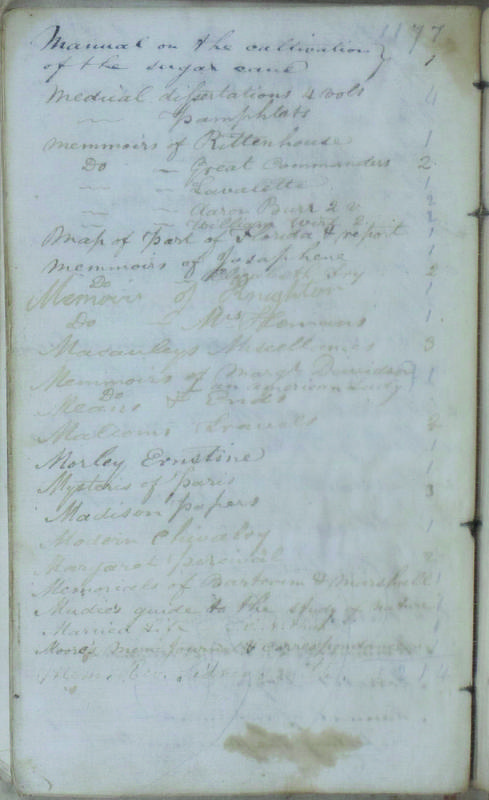 177
Manual on the cultivation
of the sugar cane 1
Medical dissertations 4 vols 4
" Pamphlets
memmoirs of Rittenhouse 1
Do - Great Commanders 2
- - Lavalette 1
- - Aaron Burr 2 v 2
- - William Wirt 2 2
Map of Part of Florida & report 1
memmoirs of Josaphene 1
Do 2
Memoirs of 1
Do Mrs Hemans 1
Macauleys Miscellanies 3
Memmoirs of Margt Davidson 1
Do of an American Lady
Means & Ends
Malcoms Travels 2
Morley Ernstine 1
Mysteris of Paris 1
Madison papers 3
Modern Chivalry 1
Margaret Percival 2
Memorials of Bartram & Marshall 1
Mudie's guide to the study of nature 1
Married Life
Moore's Mem Journal & Correspondence
14